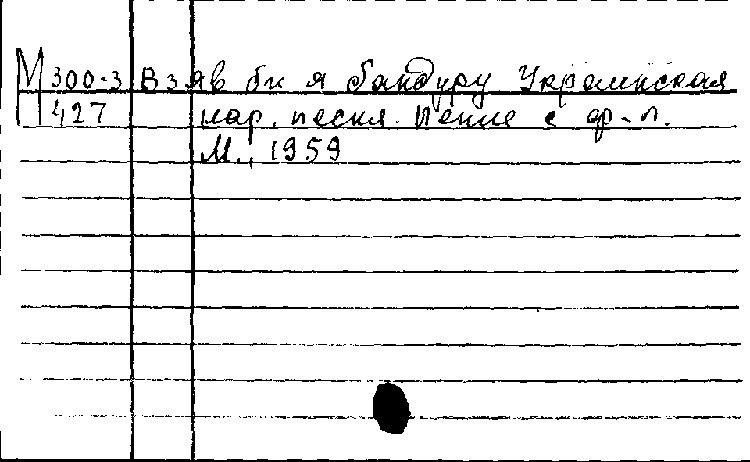 М 300-3 Взяв би я бандуру Украинская
427 нар. песня. Пение с ф-п.
М., 1959